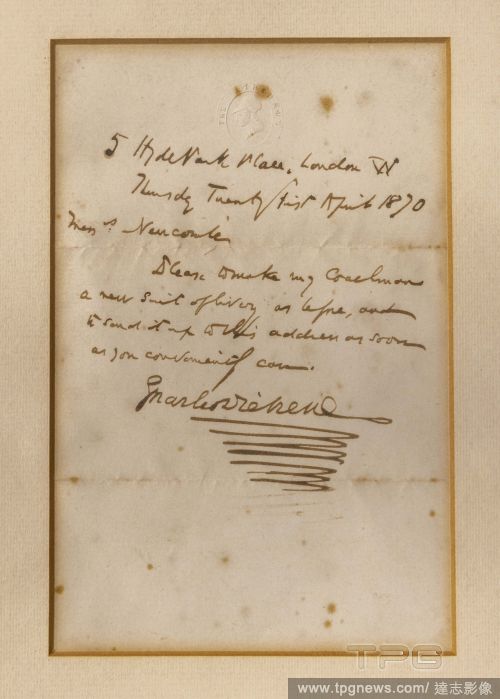 THE ATHENÆUM
5 Hyde Park Place, London W
Thursday Twenty first April 1870
Messrs. Newcomb
Please to make my Coachman
a new suit of livery as before, and
to send it up to this address as soon
as you conveniently can.
Charles Dickens
TPG
www.tpgnews.com/ 達志影像